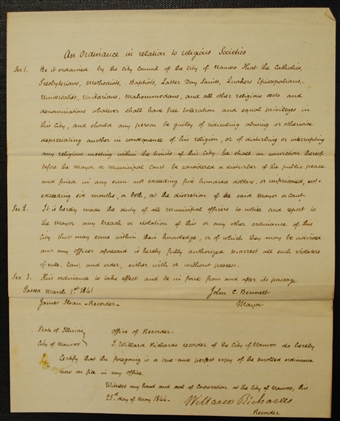 An Ordinance in relation to religious Societies
Sec 1. Be it ordained by the City Council of the City of Nauvoo that the Catholics,
Presbyterians, Methodists, Baptists, Latter Day Saints, Quakers Episcopalians,
Universalists, Unitarians, Mahommedans, and all other religious sects and
denominations whatever shall have free toleration and equal privileges in
this City, and should any person be guilty of ridiculing abusing or otherwise
depreciating another in consequence of his religion, or of disturbing or interrupting
any religious meeting within the limits of this City, he shall on conviction thereof
before the Mayor or Municipal Court be considered a disturber of the public peace
and fined in any sum not exceeding five hundred dollars, or imprisoned not
exceeding six months, or both, at the discretion of the said Mayor or Court.
Sec 2. It is hereby made the duty of all municipal officers to notice and report to
the Mayor any breach or violation of this or any other ordinance of this
City that may come within their knowledge, or of which they may be advised
and any officer aforesaid is hereby fully authorized to arrest all such violators
of rule, law, and order, either with or without process.
Sec 3. This ordinance to take effect and be in force from and after its passage.
Passed March 1st 1841. John C. Bennett
James Sloan - Recorder. Mayor
State of Illinois
City of Nauvoo
Office of Recorder.
I, Willard Richards recorder of the City of Nauvoo do hereby
Certify that the foregoing is a true and perfect copy of the enrolled ordinance
now on file in my office.
Witness my hand and seal of Corporation at the City of Nauvoo, this
25th day of May 1844.
Willard Richards
Recorder.